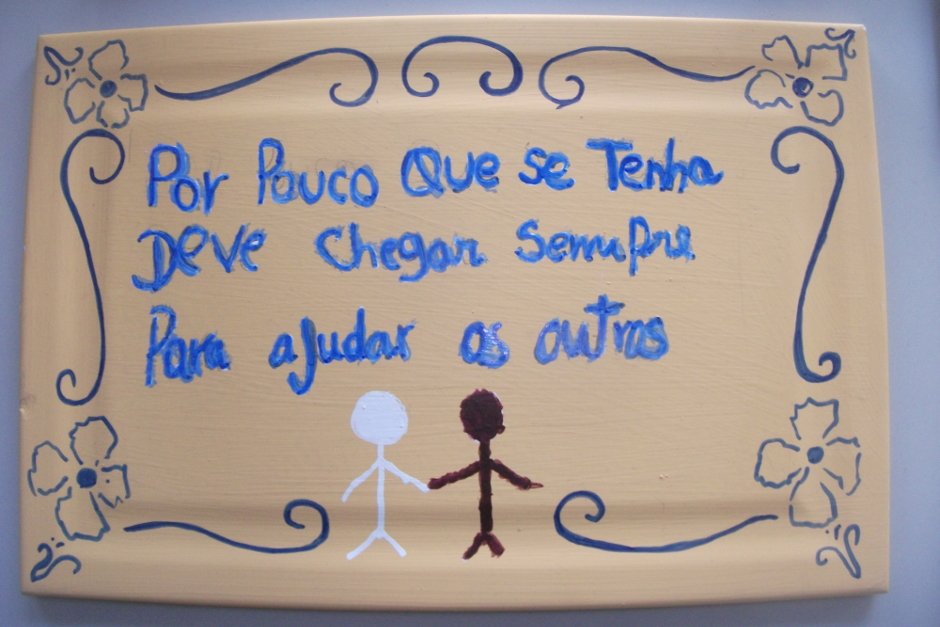 Por Pouco Que se Tenha
Deve chegar sempre
Para ajudar os outros